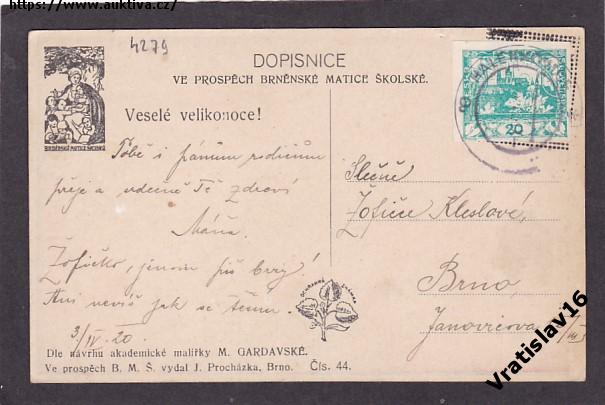 https://www.auktiva.cz/
4279
DOPISNICE
VE PROSPĚCH BRNĚNSKÉ MATICE ŠKOLSKÉ.
BRNĚNSKÁ MATICE ŠKOLSKÁ
Veselé velikonoce!
Tobě i pánům rodičům
přeje a vděčně Tě zdraví
Máňa.
Žofičko, jenom piš brzy!
Ani nevíš jak se těším.
3/IV. 20.
Slečně
Žofice Kleslové,
Brno,
Janovicova
20
Dle návrhu akademické malířky M. GARDAVSKÉ.
Ve prospěch B. M. Š. vydal J. Procházka, Brno. Čís. 44.
Vratislav16